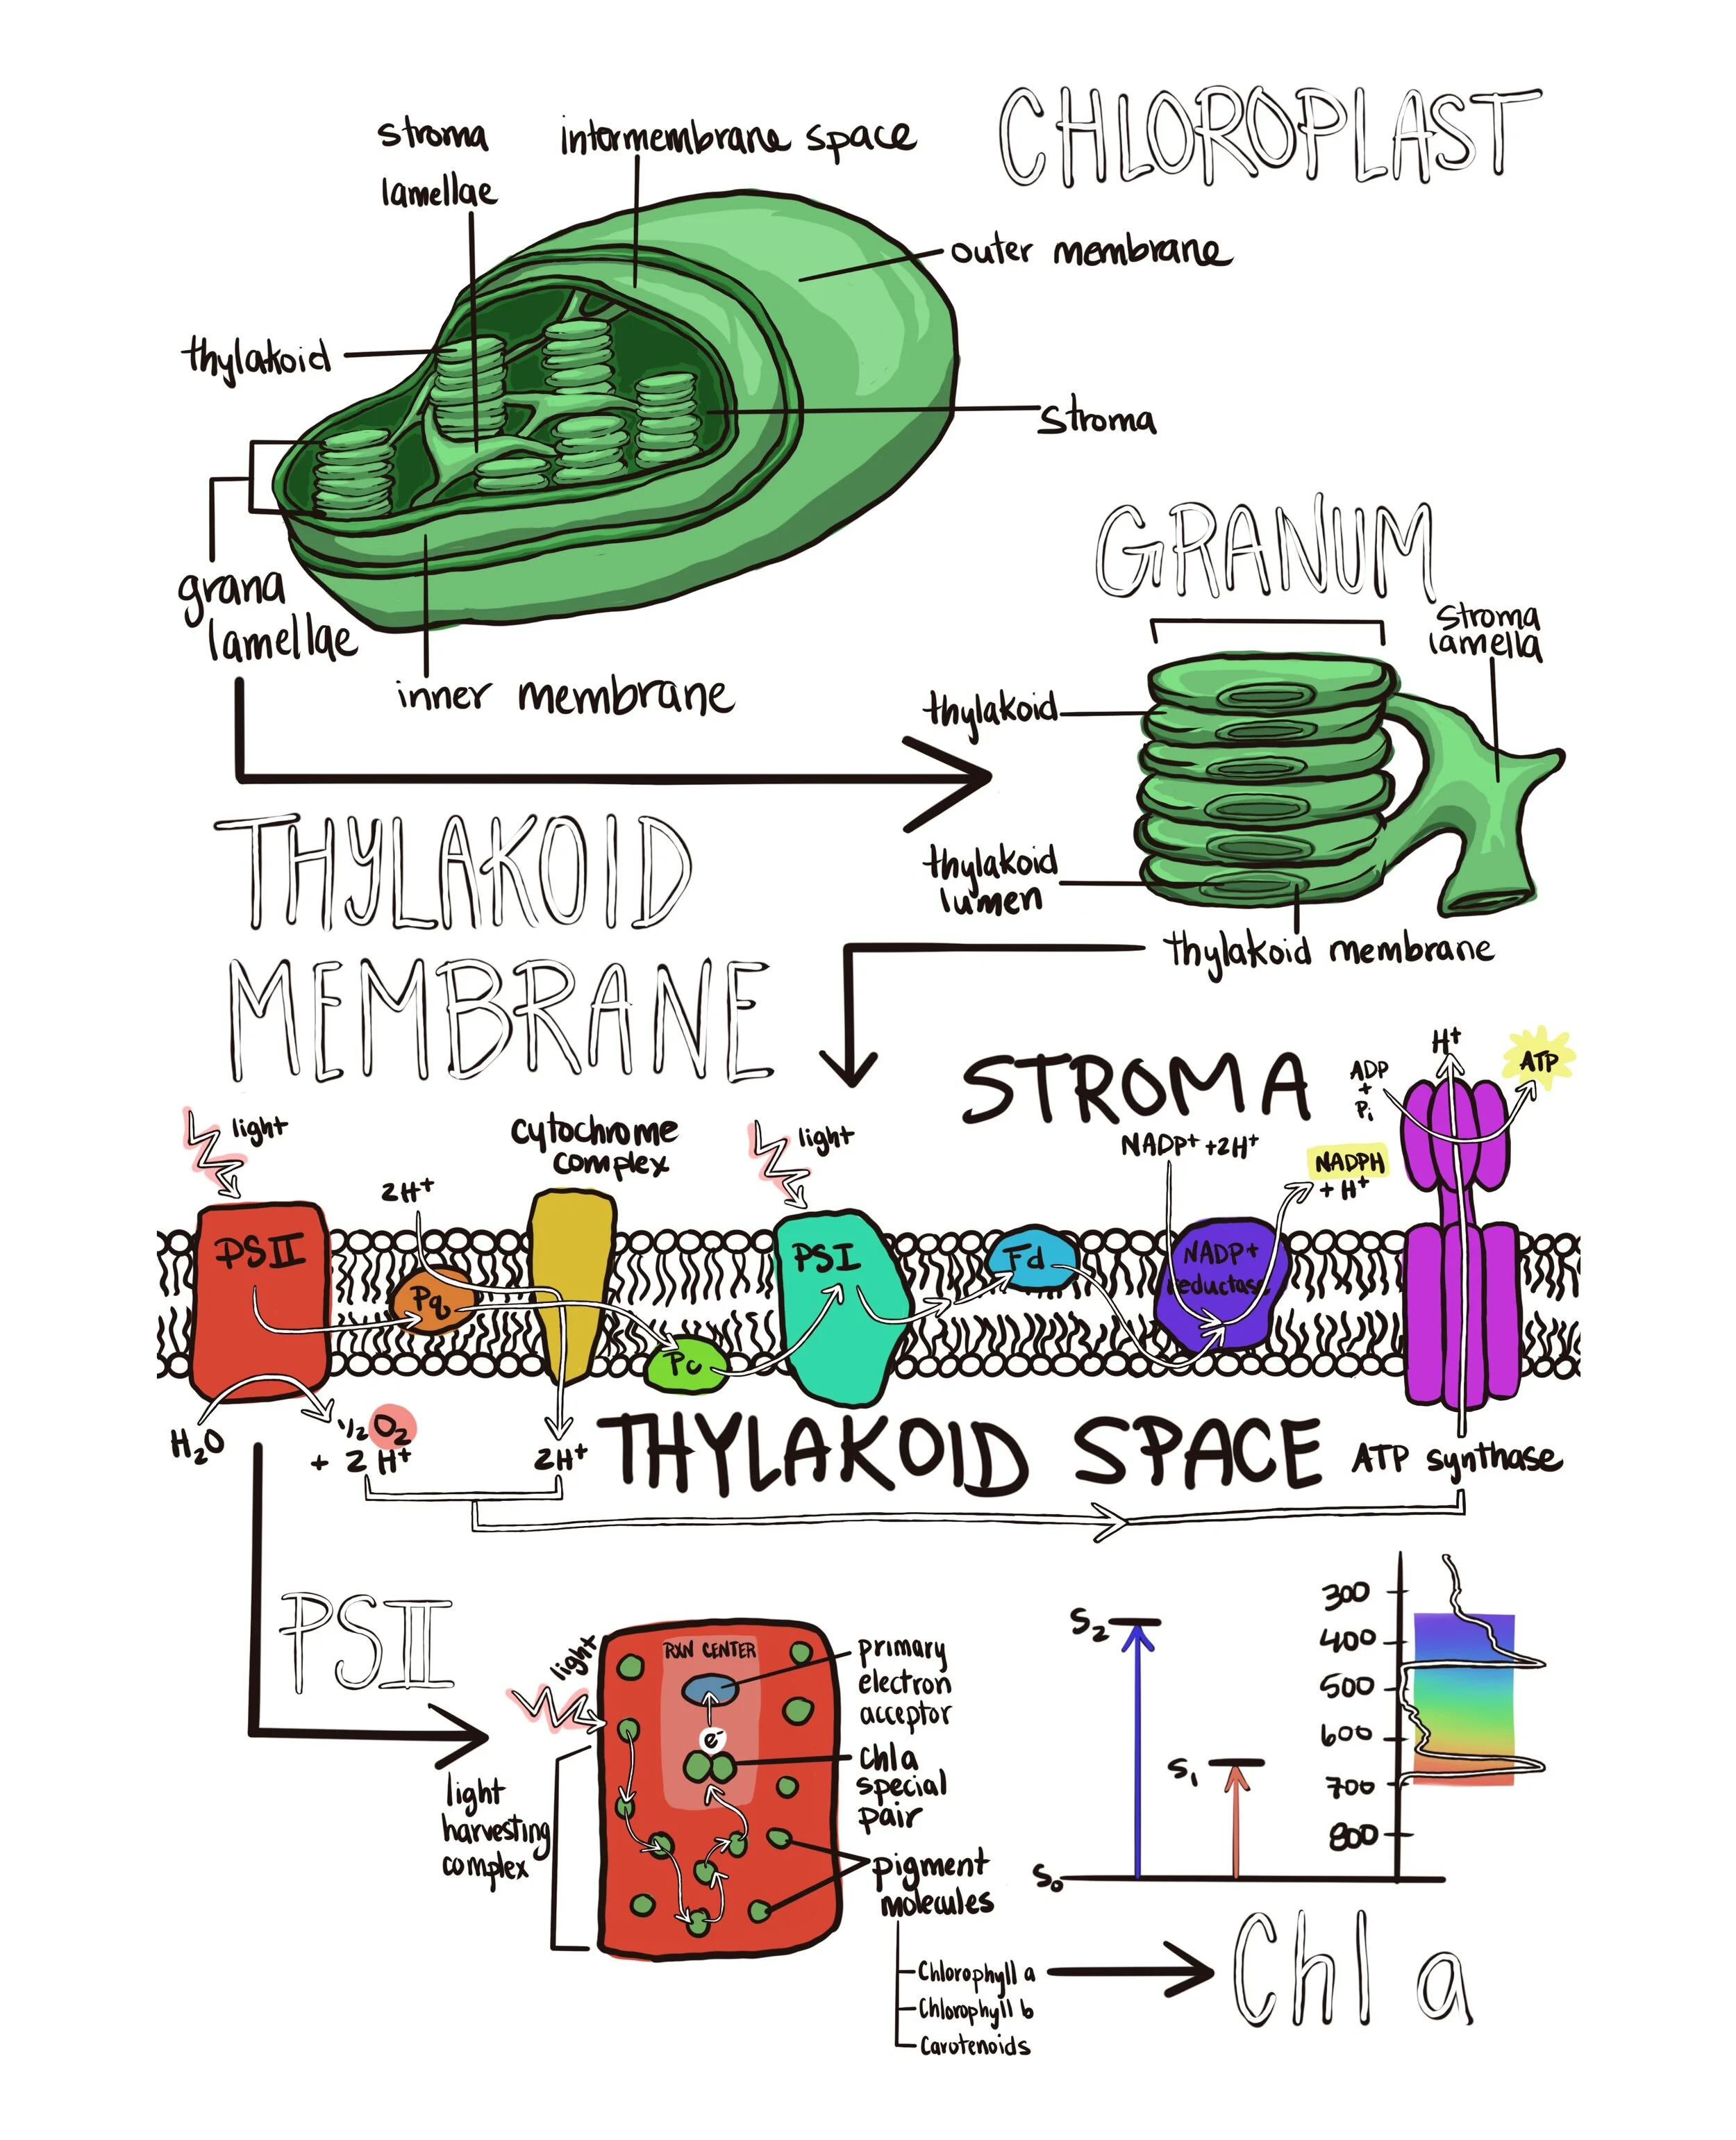 CHLOROPLAST
stroma
lamellae
intermembrane space
outer membrane
thylakoid
stroma
grana
lamellae
inner membrane
GRANUM
stroma
lamella
thylakoid
thylakoid
lumen
thylakoid membrane
THYLAKOID
MEMBRANE
STROMA
light
2H⁺
cytochrome
complex
light
NADP⁺ +2H⁺
NADPH
+ H⁺
ADP
+
Pi
H⁺
ATP
PSII
Pq
Pc
PSI
Fd
NADP+
reductase
H₂O
½ O₂
+ 2 H⁺
2H⁺
THYLAKOID SPACE
ATP synthase
PSII
light
RXN CENTER
e⁻
primary
electron
acceptor
chl a
special
pair
light
harvesting
complex
pigment
molecules
Chlorophyll a
Chlorophyll b
Carotenoids
S₂
S₁
S₀
300
400
500
600
700
800
Chl a